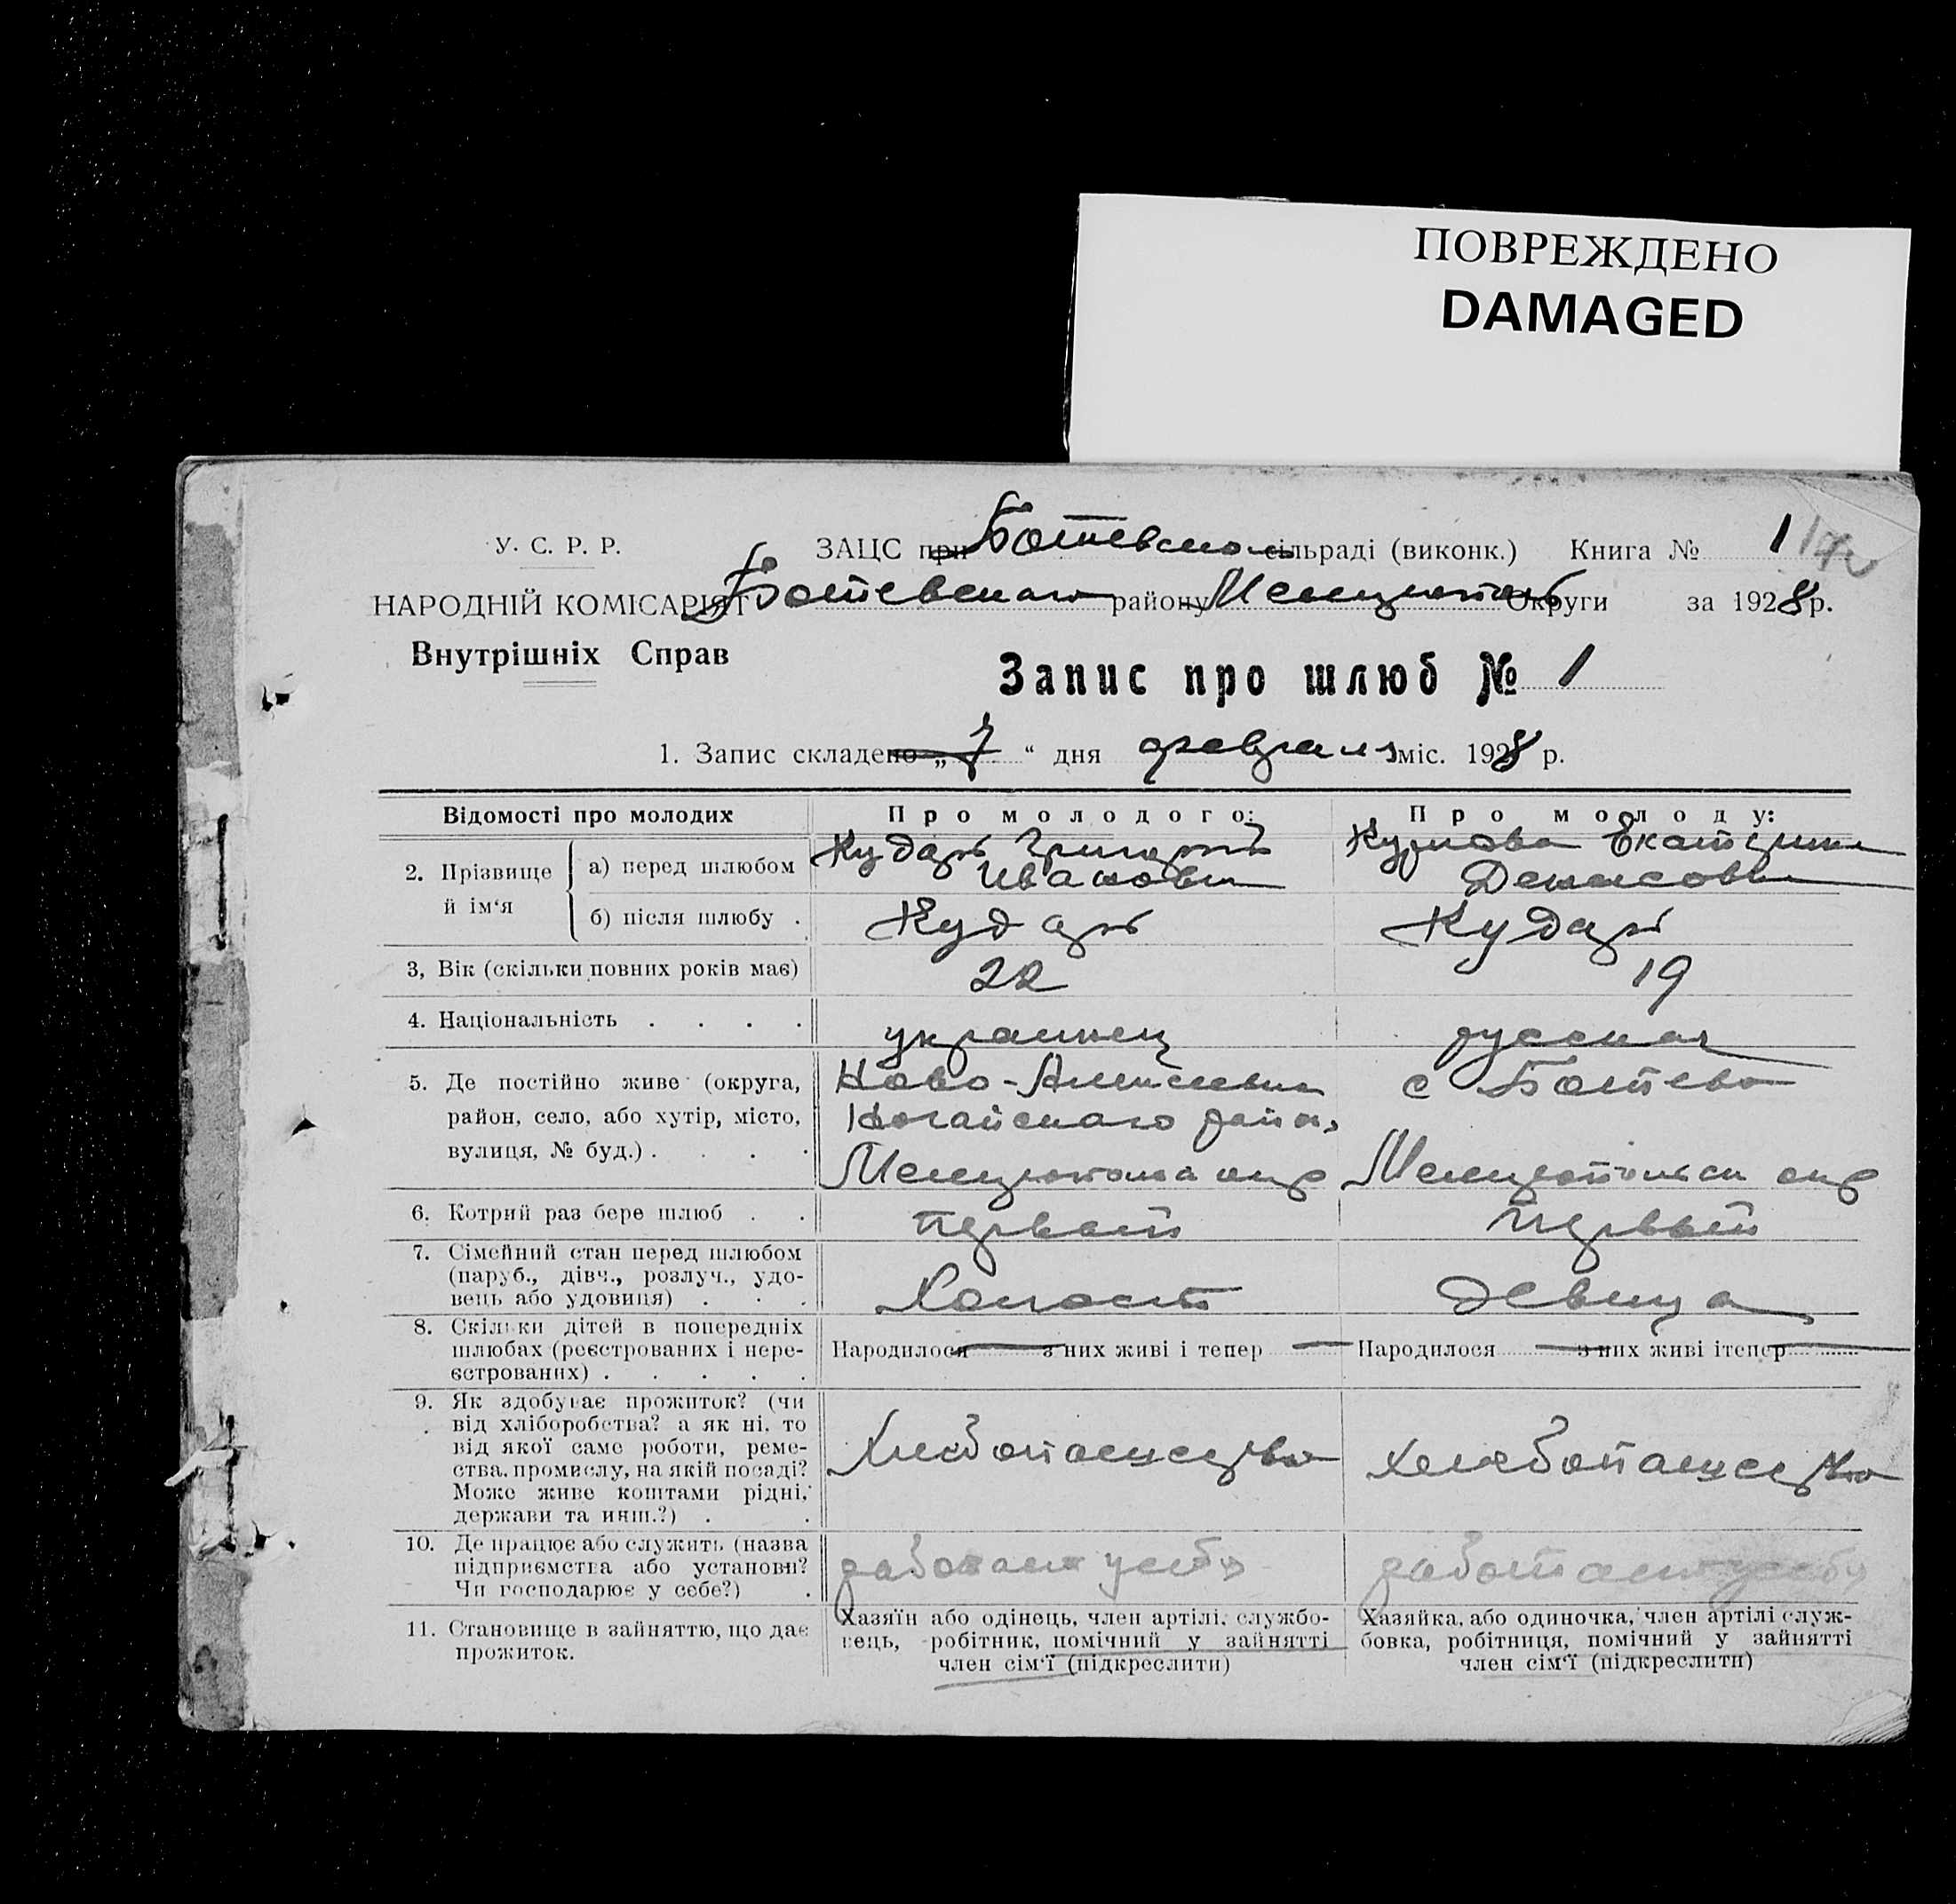 ПОВРЕЖДЕНО
DAMAGED
У. С. Р. Р. ЗАЦС при Ботевском сільраді (виконк.) Книга № 1
НАРОДНІЙ КОМІСАРІЯТ Ботевского району Мелитопол Округи за 1928 р.
Внутрішніх Справ
Запис про шлюб № 1
1. Запис складено „ 7 “ дня февраля міс. 1928 р.
Відомості про молодих Про молодого: Про молоду:
2. Прізвище й ім‘я а) перед шлюбом Кударь Григорий Екатерина
Иванович Денисовна
б) після шлюбу . Кударь Кударь
3, Вік (скільки повних років має) 22 19
4. Національність . . . . украинец русская
5. Де постійно живе (округа, Ново-Алексеевка с Ботево
район, село, або хутір, місто, Ногайского район.
вулиця, № буд.) . . . . Мелитопольск окр
6. Котрий раз бере шлюб . . первый первый
7. Сімейний стан перед шлюбом
(паруб., дівч., розлуч., удо-
вець або удовиця) . . . Холост девица
8. Скільки дітей в попередніх
шлюбах (реєстрованих і нере- Народилося з них живі і тепер Народилося з них живі ітепер
єстрованих) . . . . .
9. Як здобуває прожиток? (чи
від хліборобства? а як ні, то
від якої саме роботи, реме- Хлебопашество хлебопашество
ства, промислу, на якій посаді?
Може живе коштами рідні,
держави та инш.?) . .
10. Де працює або служить (назва
підприємства або установи? работает у себя работает у себя
Чи господарює у себе?) .
11. Становище в зайняттю, що дає
прожиток.
Хазяїн або одінець, член артілі, службо-
вець, робітник, помічний у зайнятті
член сім‘ї (підкреслити)
Хазяйка, або одиночка, член артілі служ-
бовка, робітниця, помічний у зайнятті
член сім‘ї (підкреслити)